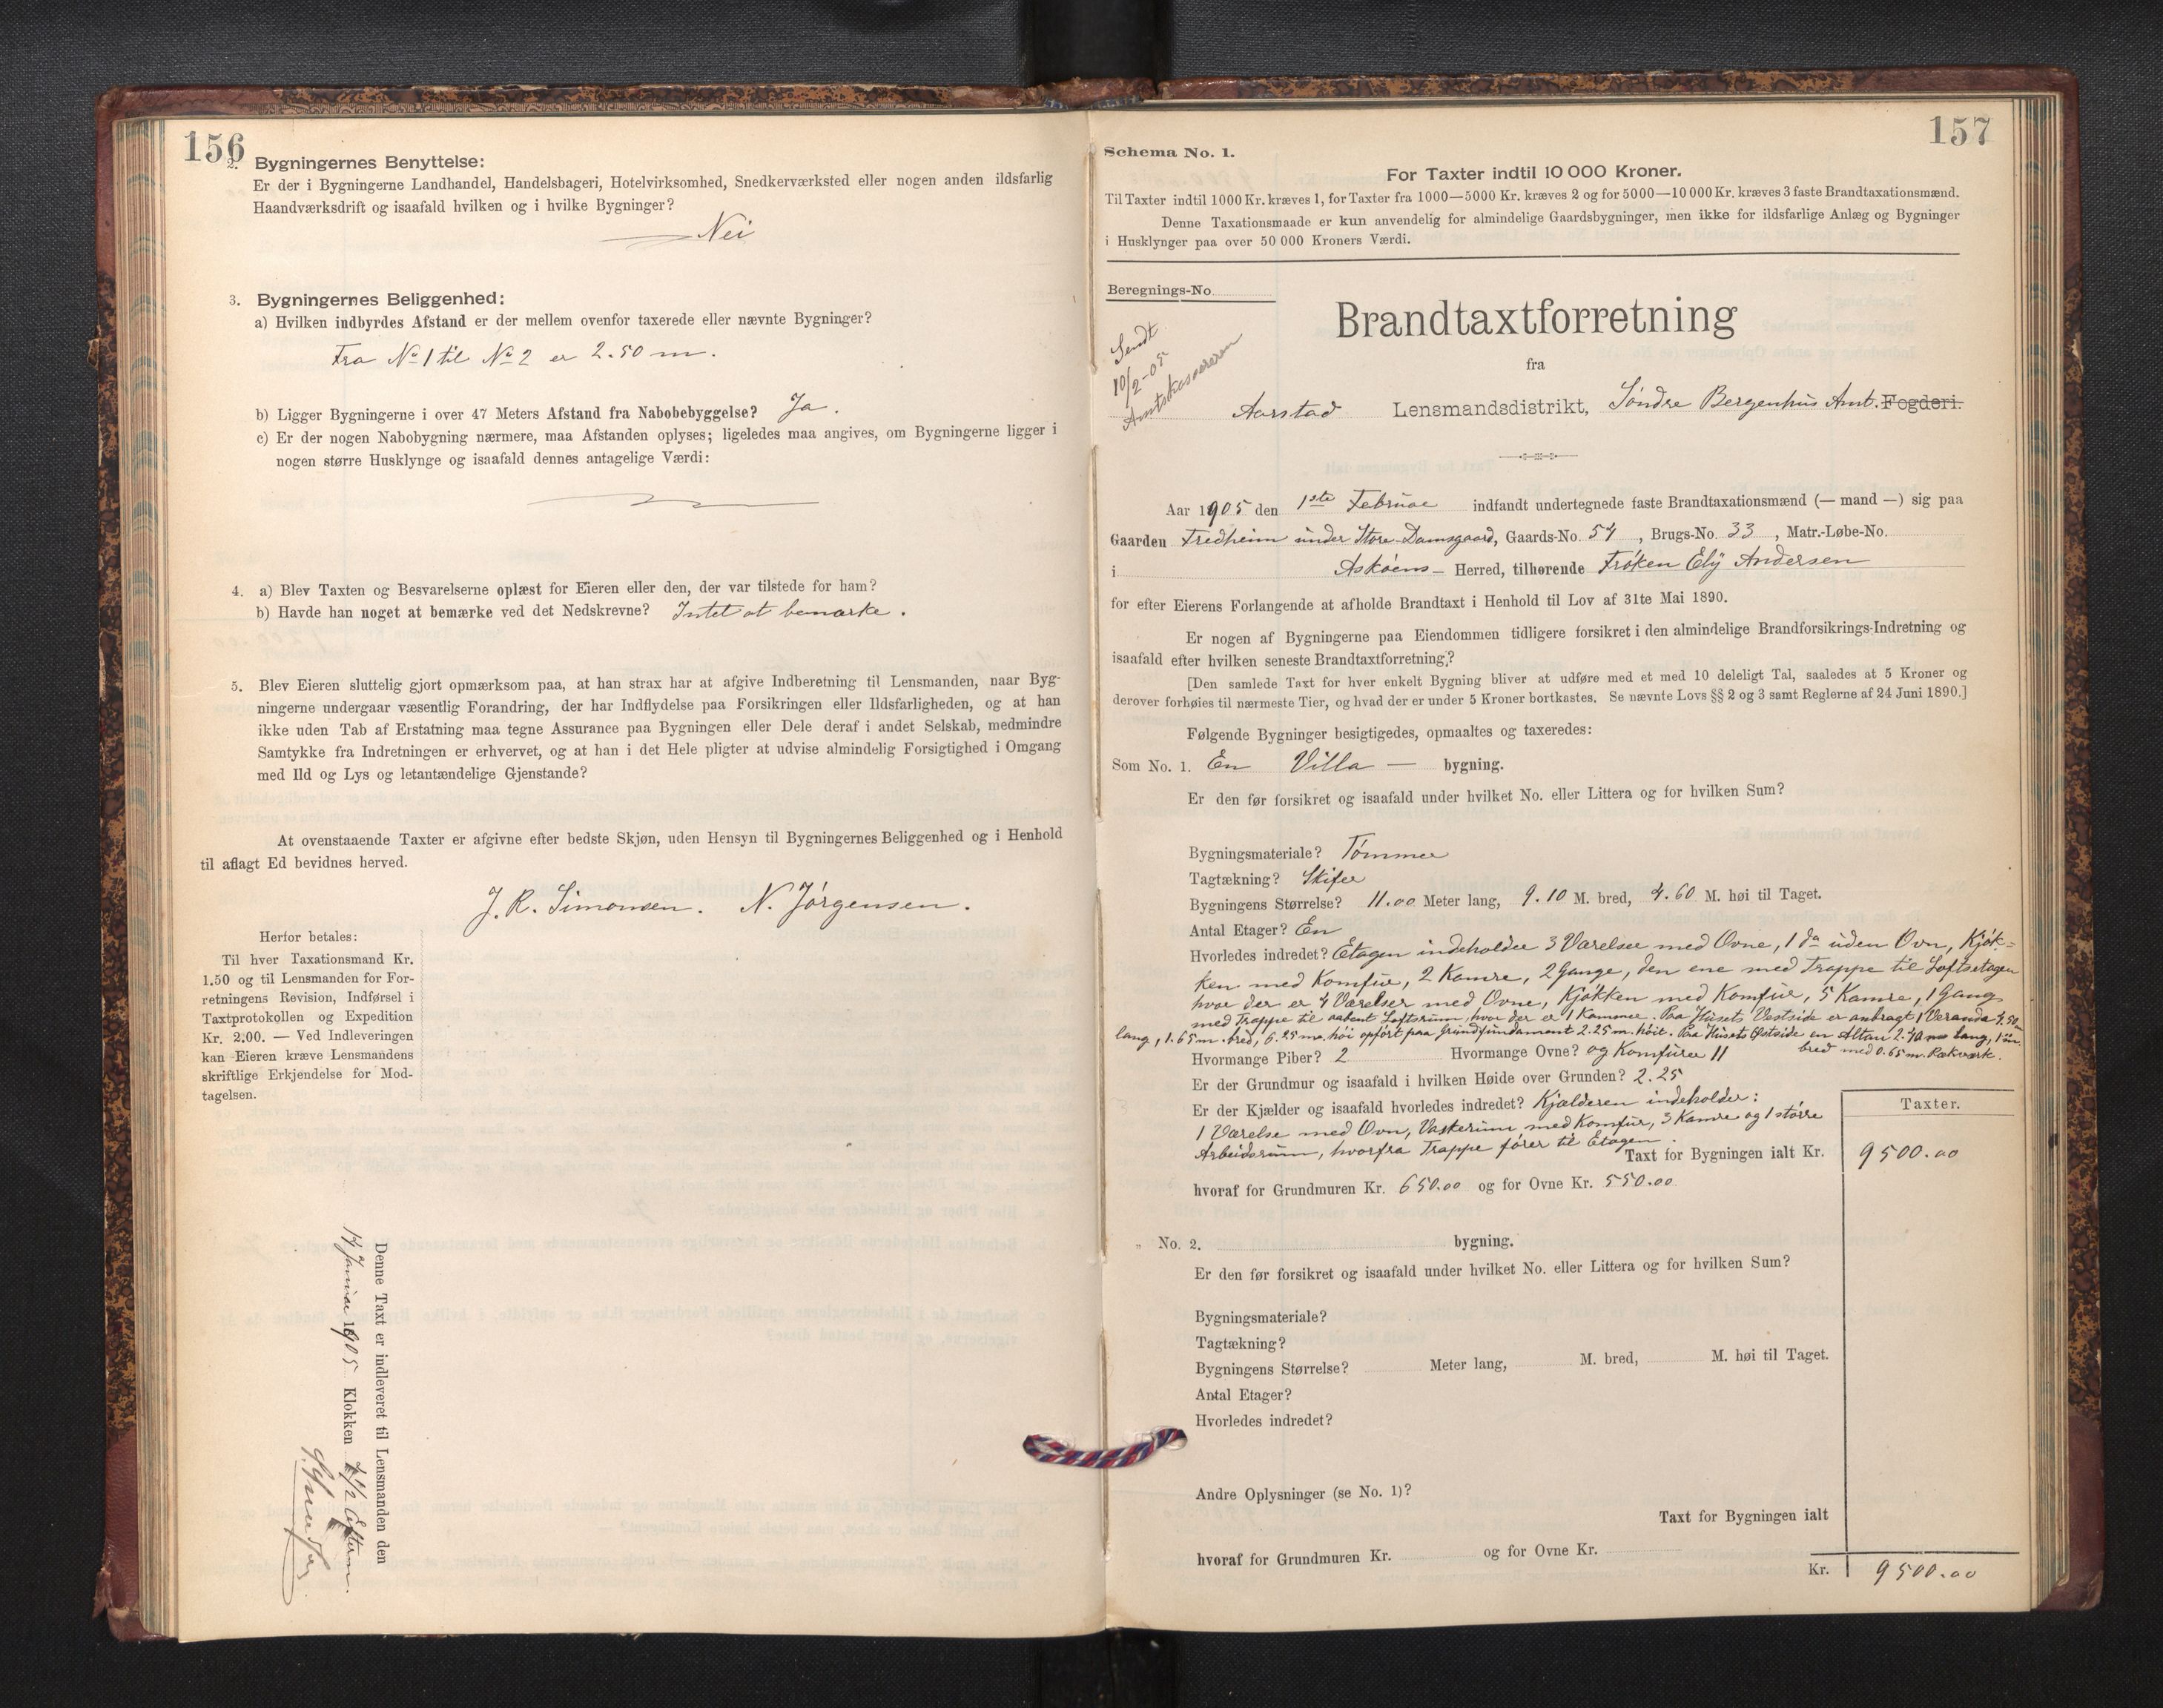 156
2. Bygningernes Benyttelse:
Er der i Bygningerne Landhandel, Handelsbageri, Hotelvirksomhed, Snedkerværksted eller nogen anden ildsfarlig
Haandværksdrift og isaafald hvilken og i hvilke Bygninger?
Nei
3. Bygningernes Beliggenhed:
a) Hvilken indbyrdes Afstand er der mellem ovenfor taxerede eller nævnte Bygninger?
Fra No 1 til No 2 er 2.50 m.
b) Ligger Bygningerne i over 47 Meters Afstand fra Nabobebyggelse? Ja.
c) Er der nogen Nabobygning nærmere, maa Afstanden oplyses; ligeledes maa angives, om Bygningerne ligger i
nogen større Husklynge og isaafald dennes antagelige Værdi:
4. a) Blev Taxten og Besvarelserne oplæst for Eieren eller den, der var tilstede for ham?
b) Havde han noget at bemærke ved det Nedskrevne? Intet at bemærke.
5. Blev Eieren sluttelig gjort opmærksom paa, at han strax har at afgive Indberetning til Lensmanden, naar Byg-
ningerne undergaar væsentlig Forandring, der har Indflydelse paa Forsikringen eller Ildsfarligheden, og at han
ikke uden Tab af Erstatning maa tegne Assurance paa Bygningen eller Dele deraf i andet Selskab, medmindre
Samtykke fra Indretningen er erhvervet, og at han i det Hele pligter at udvise almindelig Forsigtighed i Omgang
med Ild og Lys og letantændelige Gjenstande?
At ovenstaaende Taxter er afgivne efter bedste Skjøn, uden Hensyn til Bygningernes Beliggenhed og i Henhold
til aflagt Ed bevidnes herved.
J. R. Simonsen. N. Jörgensen.
Herfor betales:
Til hver Taxationsmand Kr.
1.50 og til Lensmanden for For-
retningens Revision, Indførsel i
Taxtprotokollen og Expedition
Kr. 2.00. — Ved Indleveringen
kan Eieren kræve Lensmandens
skriftlige Erkjendelse for Mod-
tagelsen.
Denne Taxt er indleveret til Lensmanden den
Januar 1905 Klokken 4 1/2 Efterm.
157
Schema No. 1.
For Taxter indtil 10 000 Kroner.
Til Taxter indtil 1000 Kr. kræves 1, for Taxter fra 1000—5000 Kr. kræves 2 og for 5000—10 000 Kr. kræves 3 faste Brandtaxationsmænd.
Denne Taxationsmaade er kun anvendelig for almindelige Gaardsbygninger, men ikke for ildsfarlige Anlæg og Bygninger
i Husklynger paa over 50 000 Kroners Værdi.
Beregnings-No.
Sendt
10/2-05
Amtskassereren
Brandtaxtforretning
fra
Aarstad Lensmandsdistrikt, Söndre Bergenhus Amt. Fogderi.
Aar 1905 den 1ste Februar indfandt undertegnede faste Brandtaxationsmænd (— mand —) sig paa
Gaarden Fredheim under Store-Damsgaard, Gaards-No. 54, Brugs-No. 33, Matr.-Løbe-No.
i Asköens – Herred, tilhørende Fröken Ely Andersen
for efter Eierens Forlangende at afholde Brandtaxt i Henhold til Lov af 31te Mai 1890.
Er nogen af Bygningerne paa Eiendommen tidligere forsikret i den almindelige Brandforsikrings-Indretning og
isaafald efter hvilken seneste Brandtaxtforretning?
[Den samlede Taxt for hver enkelt Bygning bliver at udføre med et med 10 deleligt Tal, saaledes at 5 Kroner og
derover forhøies til nærmeste Tier, og hvad der er under 5 Kroner bortkastes. Se nævnte Lovs §§ 2 og 3 samt Reglerne af 24 Juni 1890.]
Følgende Bygninger besigtigedes, opmaaltes og taxeredes:
Som No. 1. En Villa — bygning.
Er den før forsikret og isaafald under hvilket No. eller Littera og for hvilken Sum?
Bygningsmateriale? Tömmer
Tagtækning? Skifer
Bygningens Størrelse? 11.00 Meter lang, 9.10 M. bred, 4.60 M. høi til Taget.
Antal Etager? En
Hvorledes indredet? Etagen indeholder 3 Værelser med Ovne, 1 do uden Ovn, Kjök-
ken med Komfur, 2 Kamre, 2 Gange, den ene med Trappe til Loftsetagen
hvor der er 4 Værelser med Ovne, Kjökken med Komfur, 5 Kamre, 1 Gang
med Trappe til aabent Loftsrum, hvor der er 1 Kammer. Paa Husets Vestside er anbragt 1 Veranda 4.50 m
lang, 1.65 m. bred, 6.25 m. höi opfört paa Grundfundament 2.25 m. höit. Paa Husets Östside en Altan 2.40 m lang, 1 m.
bred med 0.65 m. Rækværk.
Hvormange Piber? 2 Hvormange Ovne? og Komfurer 11
Er der Grundmur og isaafald i hvilken Høide over Grunden? 2.25
Er der Kjælder og isaafald hvorledes indredet? Kjælderen indeholder:
1 Værelse med Ovn, Vaskerum med Komfur, 3 Kamre og 1 större
Arbeidsrum, hvorfra Trappe förer til Etagen.
Taxter.
Taxt for Bygningen ialt Kr. 9500.00
hvoraf for Grundmuren Kr. 650.00 og for Ovne Kr. 550.00
„ No. 2. bygning.
Er den før forsikret og isaafald under hvilket No. eller Littera og for hvilken Sum?
Bygningsmateriale?
Tagtækning?
Bygningens Størrelse? Meter lang, M. bred, M. høi til Taget.
Antal Etager?
Hvorledes indredet?
Andre Oplysninger (se No. 1)?
Taxt for Bygningen ialt
hvoraf for Grundmuren Kr. og for Ovne Kr.
Kr. 9500.00